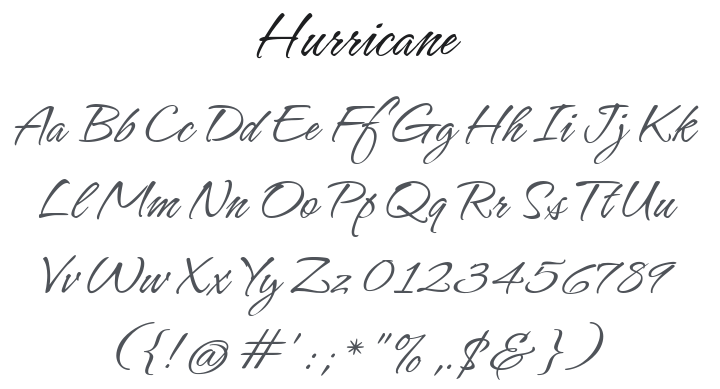 Hurricane
Aa Bb Cc Dd Ee Ff Gg Hh Ii Jj Kk
Ll Mm Nn Oo Pp Qq Rr Ss Tt Uu
Vv Ww Xx Yy Zz 0123456789
({!@#':;*"%,.$&})